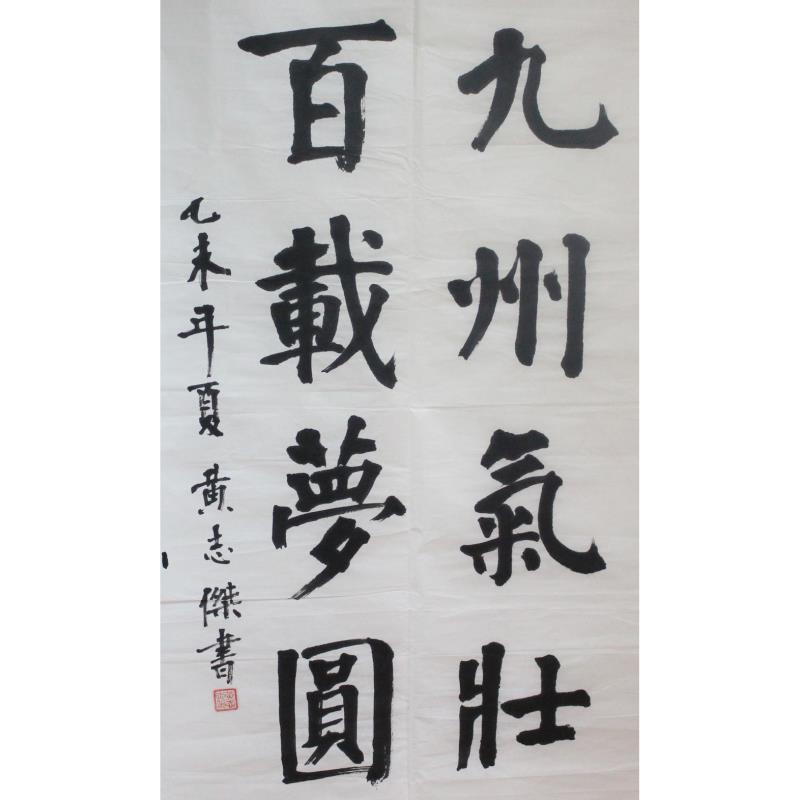 九州氣壯
百載夢圓
乙未年夏黃志傑書